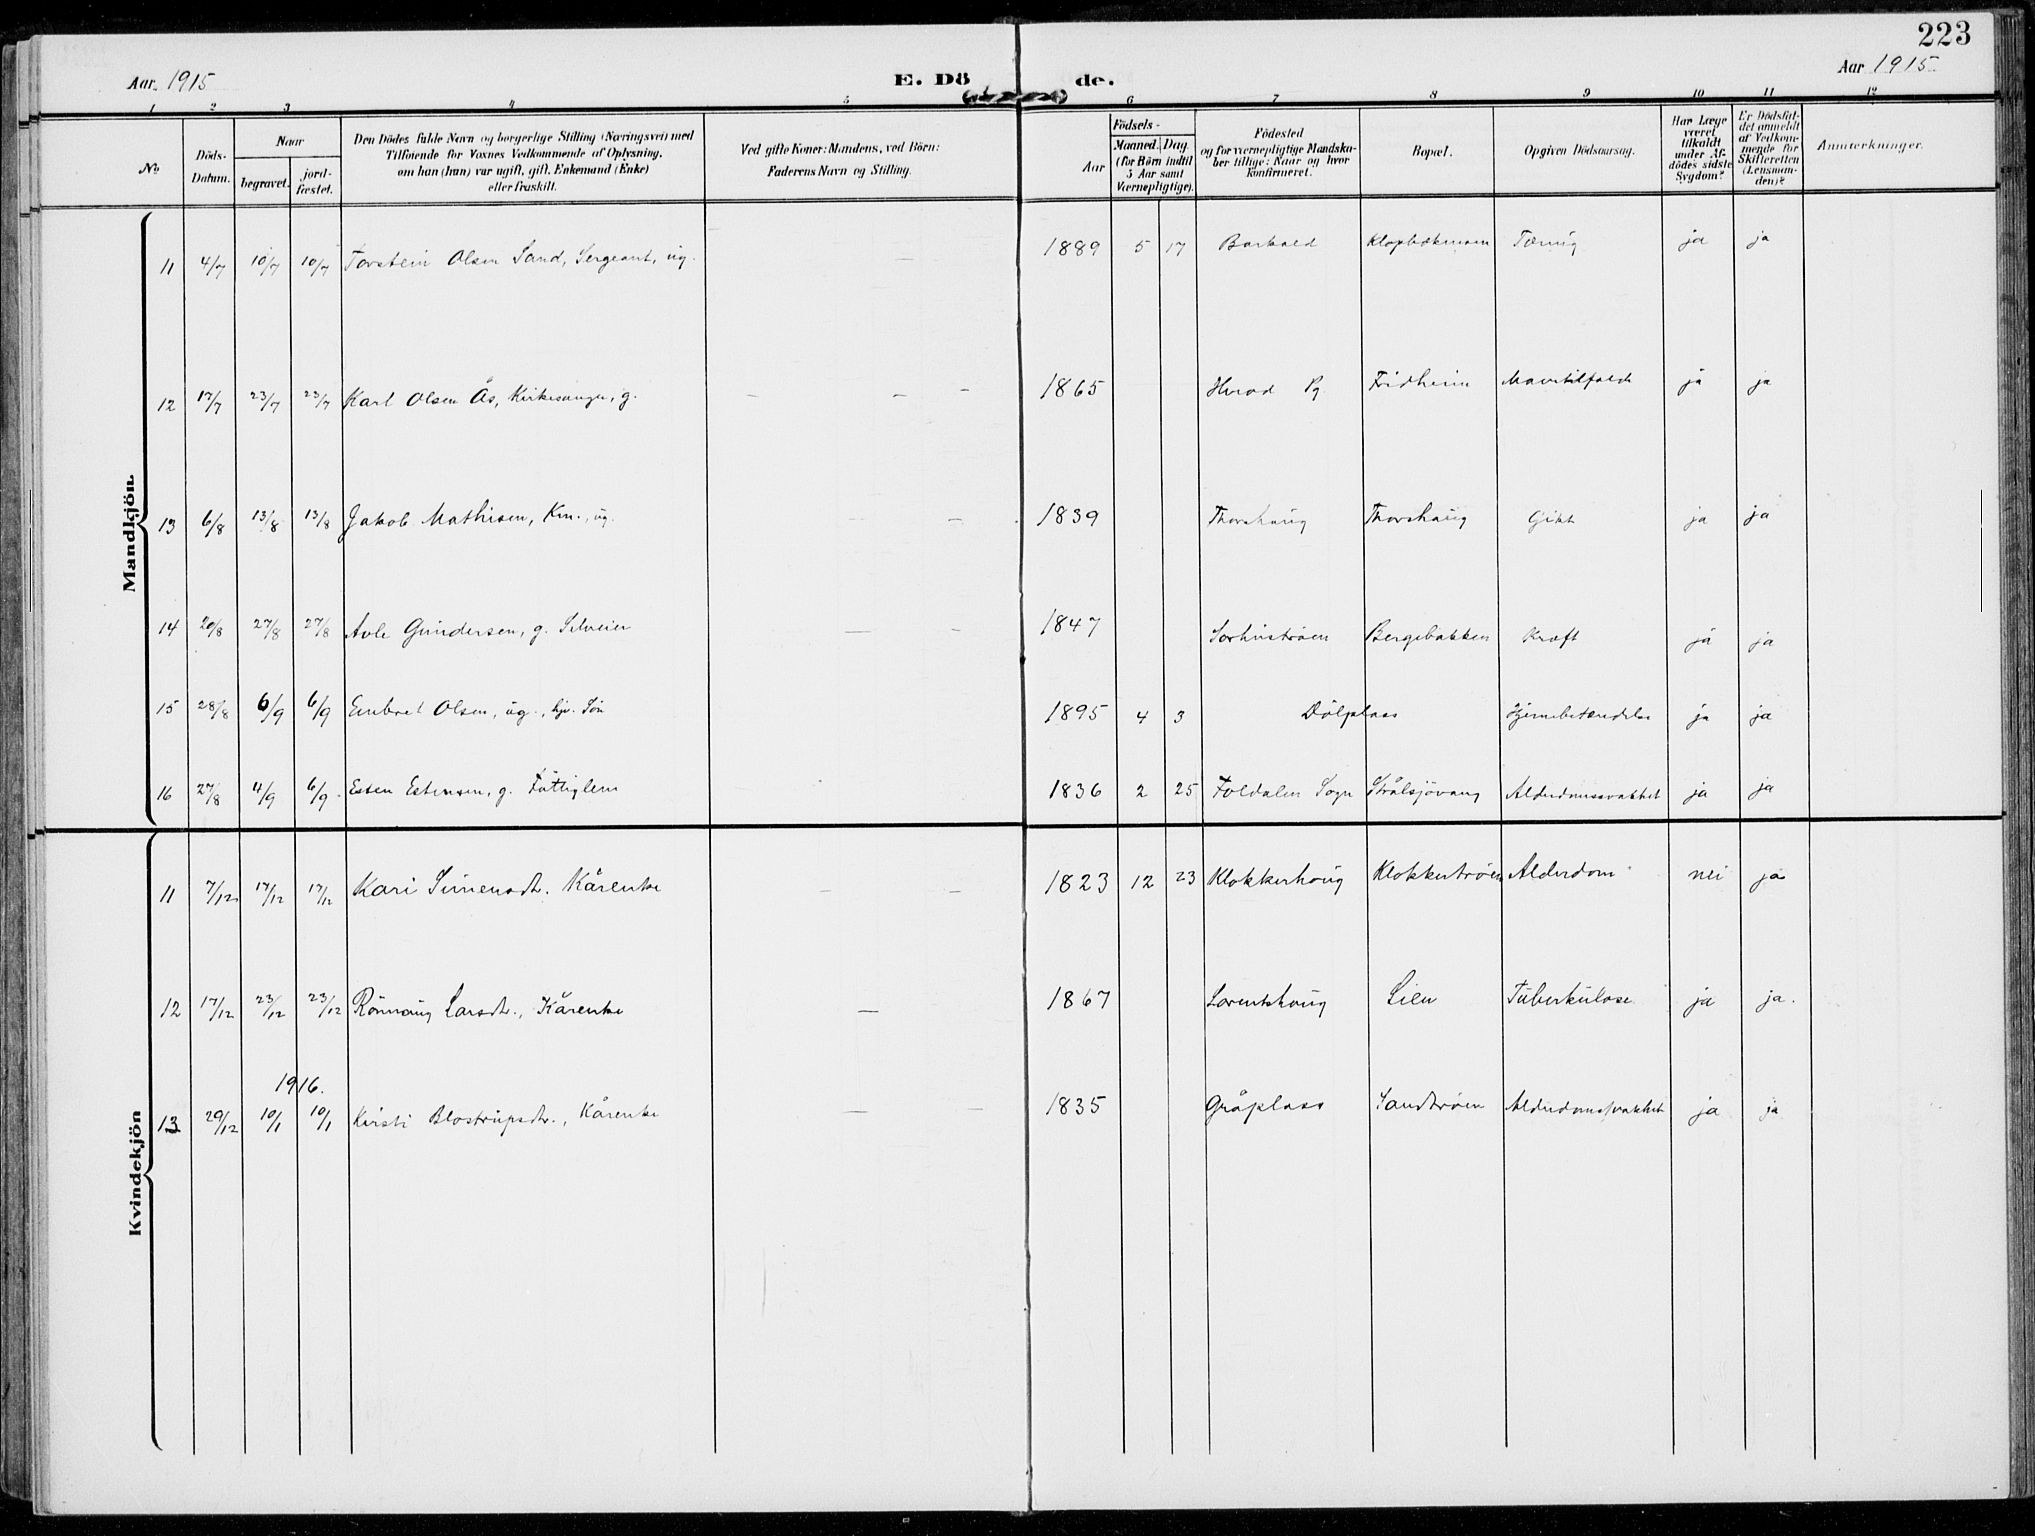 223
Aar 1915
E. Dö de.
Aar 1915
1 2 3 4 5 6 7 8 9 10 11 12
No
Döds-Datum.
Naar
begravet.
jord-fæstet.
Den Dödes fulde Navn og borgerlige Stilling (Næringsvei) med
Tilföiende for Voxnes Vedkommende af Oplysning,
om han (hun) var ugift, gift, Enkemand (Enke)
eller fraskilt.
Ved gifte Koner: Mandens, ved Börn:
Faderens Navn og Stilling.
Födsels-
Aar
Maaned. Dag.
(for Börn indtil
5 Aar samt
Værnepligtige).
Födested
og for værnepligtige Mandska-
ber tillige: Naar og hvor
konfirmeret.
Bopæl.
Opgiven Dödsaarsag.
Har Læge
været
tilkaldt
under Af-
dödes sidste
Sygdom?
Er Dödsfal-
det anmeldt
af Vedkom-
mende för
Skifteretten
(Lensman-
den)?
Anmærkninger.
Mandkjön.
11 4/7 10/7 10/7 Torstein Olsen Sand, Sergeant, ug. — — 1889 5 17 Barkald Tæring ja ja
12 17/7 23/7 23/7 Karl Olsen Ås, Kirkesanger, g. — — — 1865 Fridheim Mavetilfælde ja ja
13 6/8 13/8 13/8 Jakob Mathisen, Km., ug. — 1839 Thorshaug Thorshaug Gikt ja ja
14 20/8 27/8 27/8 Avle Gundersen, g. Selveier — — 1847 Bergebakken Kræft ja ja
15 28/8 6/9 6/9 Embret Olsen, ug., hjv. Sön 1895 4 3 Dölplass Hjernebetændelse ja ja
16 27/8 4/9 6/9 Esten Estensen, g. Fattiglem 1836 2 25 Foldalen Sogn Strålsjövang Alderdomssvakhet ja ja
Kvindekjön
11 7/12 17/12 17/12 Kari Simensdtr. Kårenke — — 1823 12 23 Klokkerhaug Klokkertröen Alderdom nei ja
12 17/12 23/12 23/12 Rönnaug Larsdtr., Kårenke — 1867 Lorentshaug Lien Tuberkulose ja ja.
1916.
13 29/12 10/1 10/1 Kirsti Blostrupsdtr., Kårenke — — 1835 Gråplass Sandtröen Alderdomssvakhet ja ja